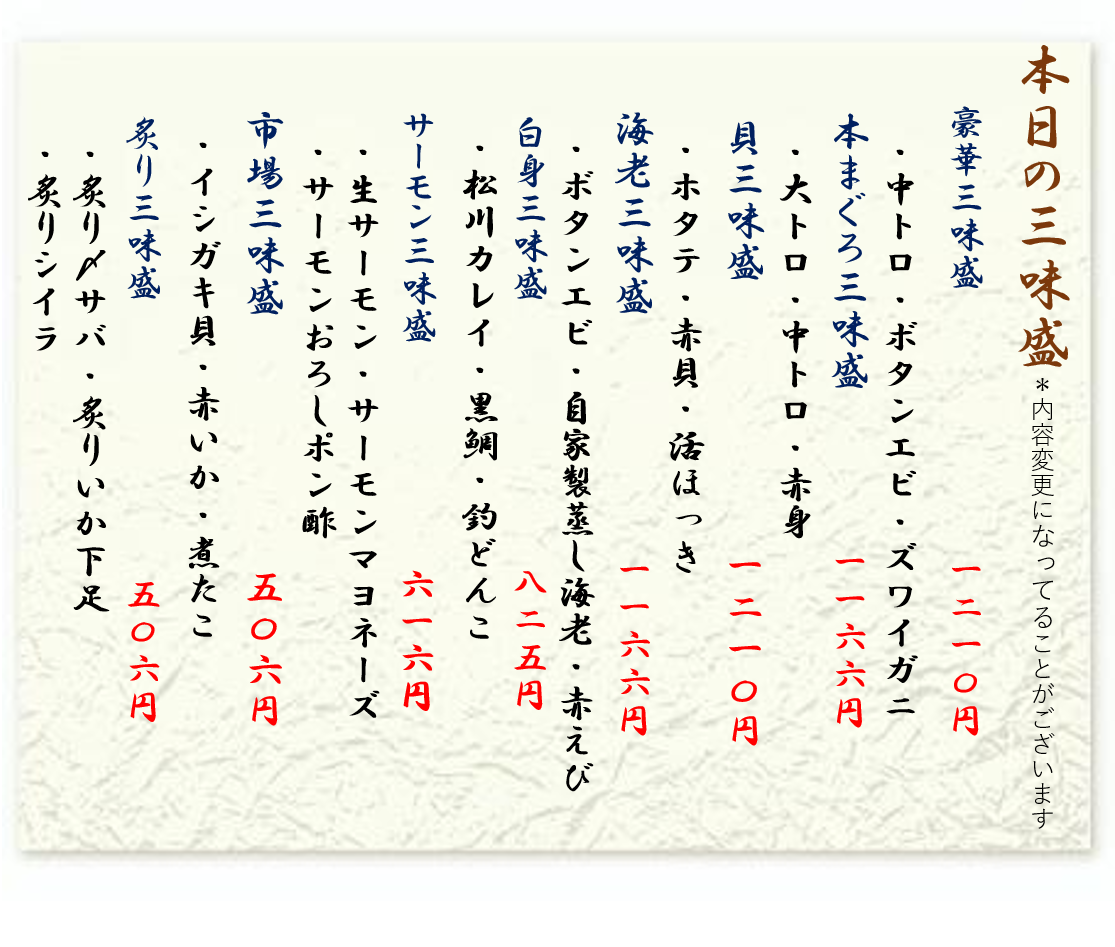 本日の三味盛 *内容変更になってることがございます
豪華三味盛 一二一〇円
・中トロ・ボタンエビ・ズワイガニ
本まぐろ三味盛 一一六六円
・大トロ・中トロ・赤身
貝三味盛 一二一〇円
・ホタテ・赤貝・活ほっき
海老三味盛 一一六六円
・ボタンエビ・自家製蒸し海老・赤えび
白身三味盛 八二五円
・松川カレイ・黒鯛・釣どんこ
サーモン三味盛 六一六円
・生サーモン・サーモンマヨネーズ
・サーモンおろしポン酢
市場三味盛 五〇六円
・イシガキ貝・赤いか・煮たこ
炙り三味盛 五〇六円
・炙り〆サバ・炙りいか下足
・炙りシイラ